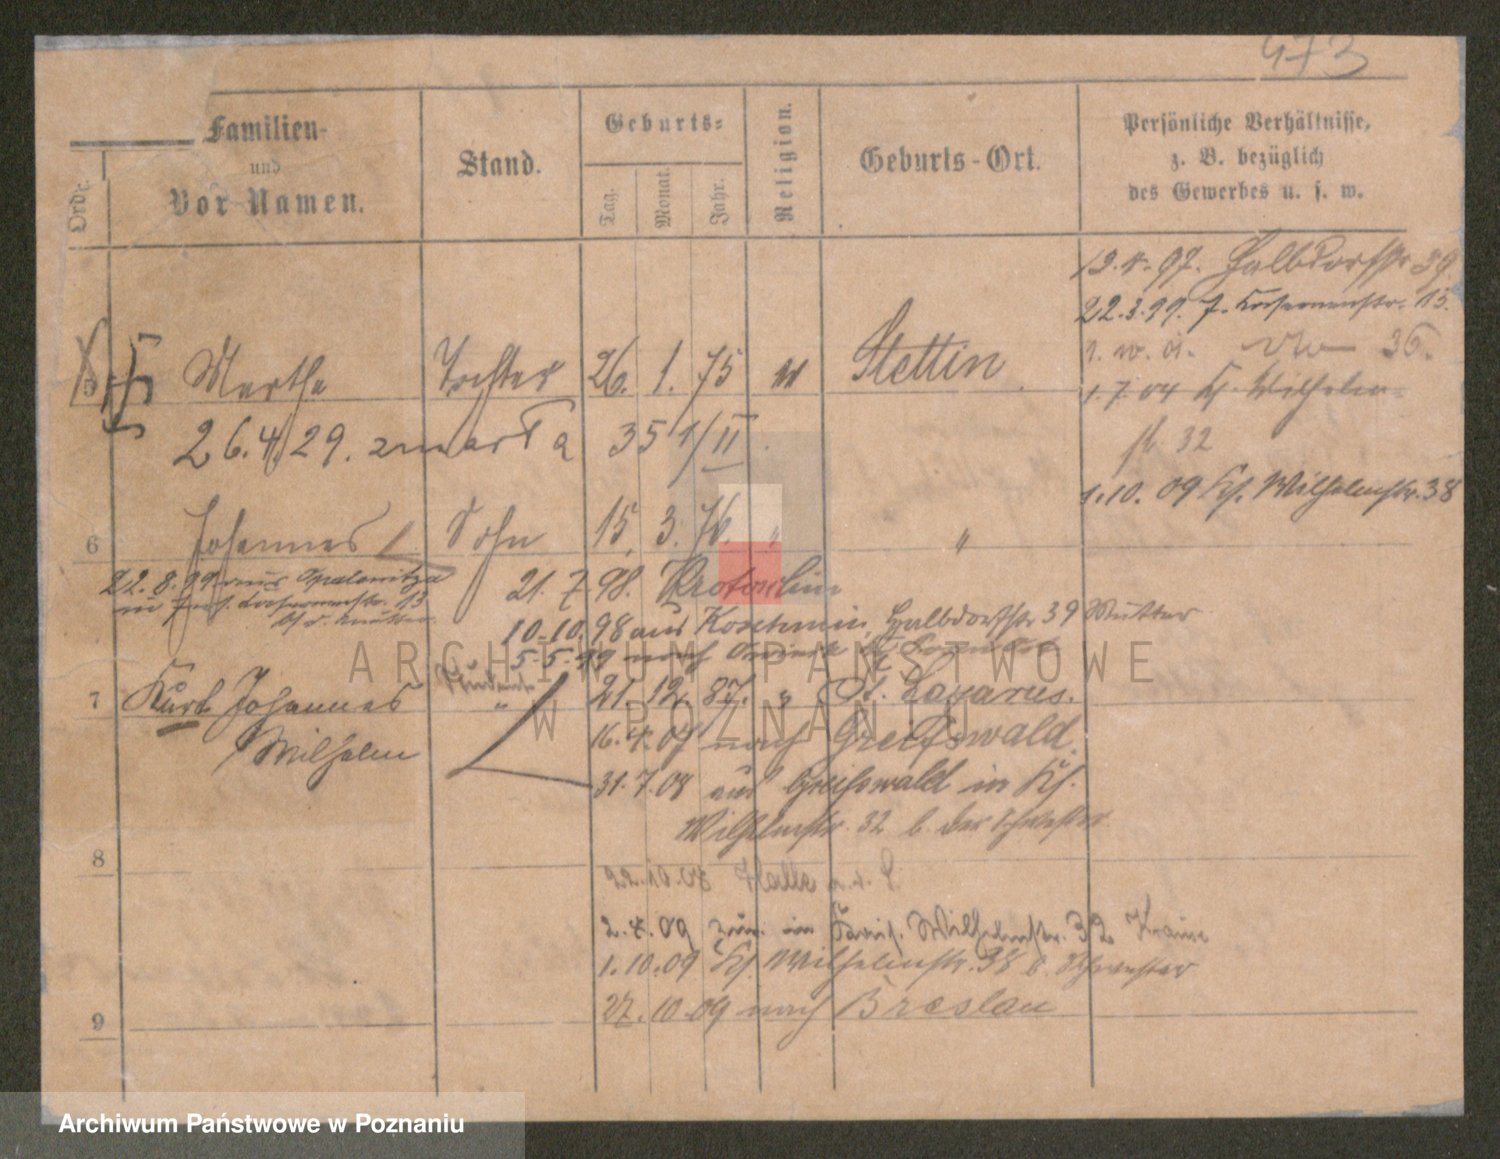 473
Ordr.
Familien-
und
Vor-Namen.
Stand.
Geburts-
Tag.
Monat.
Jahr.
Religion.
Geburts-Ort.
Persönliche Verhältnisse,
z. B. bezüglich
des Gewerbes u. s. w.
Halbdorfstr 39
22.3.99. Kasernenstr. 15.
36.
1.7.04 Kf. Wilhelm-
str. 32
1.10.09 Kf. Wilhelmstr. 38
5 Martha Tochter 26. 1. 75 Stettin
26.4.29. zmarła 351/II
6 Johannes Sohn 15. 3. 76. " "
22.8.99 aus Opalenitza
in Kasernenstr. 13
21.7.98. Krotoschin
10.10.98 aus Koschmin, Halbdorfstr 39 Mutter
5.5.99 nach
7 Kurt Johannes Student " 21. 12. 87. " St. Lazarus.
Wilhelm
16.4.07 nach Greifswald.
31.7.08 aus Greifswald in Kf.
Wilhelmstr. 32 b. der Schwester
8
22.10.08 Halle a. d. S.
2.4.09 zur. in Wilhelmstr. 32 Krause
1.10.09 Kf. Wilhelmstr. 38 b. Schwester
9
27.10.09 nach Breslau
ARCHIWUM PAŃSTWOWE
W POZNANIU
Archiwum Państwowe w Poznaniu